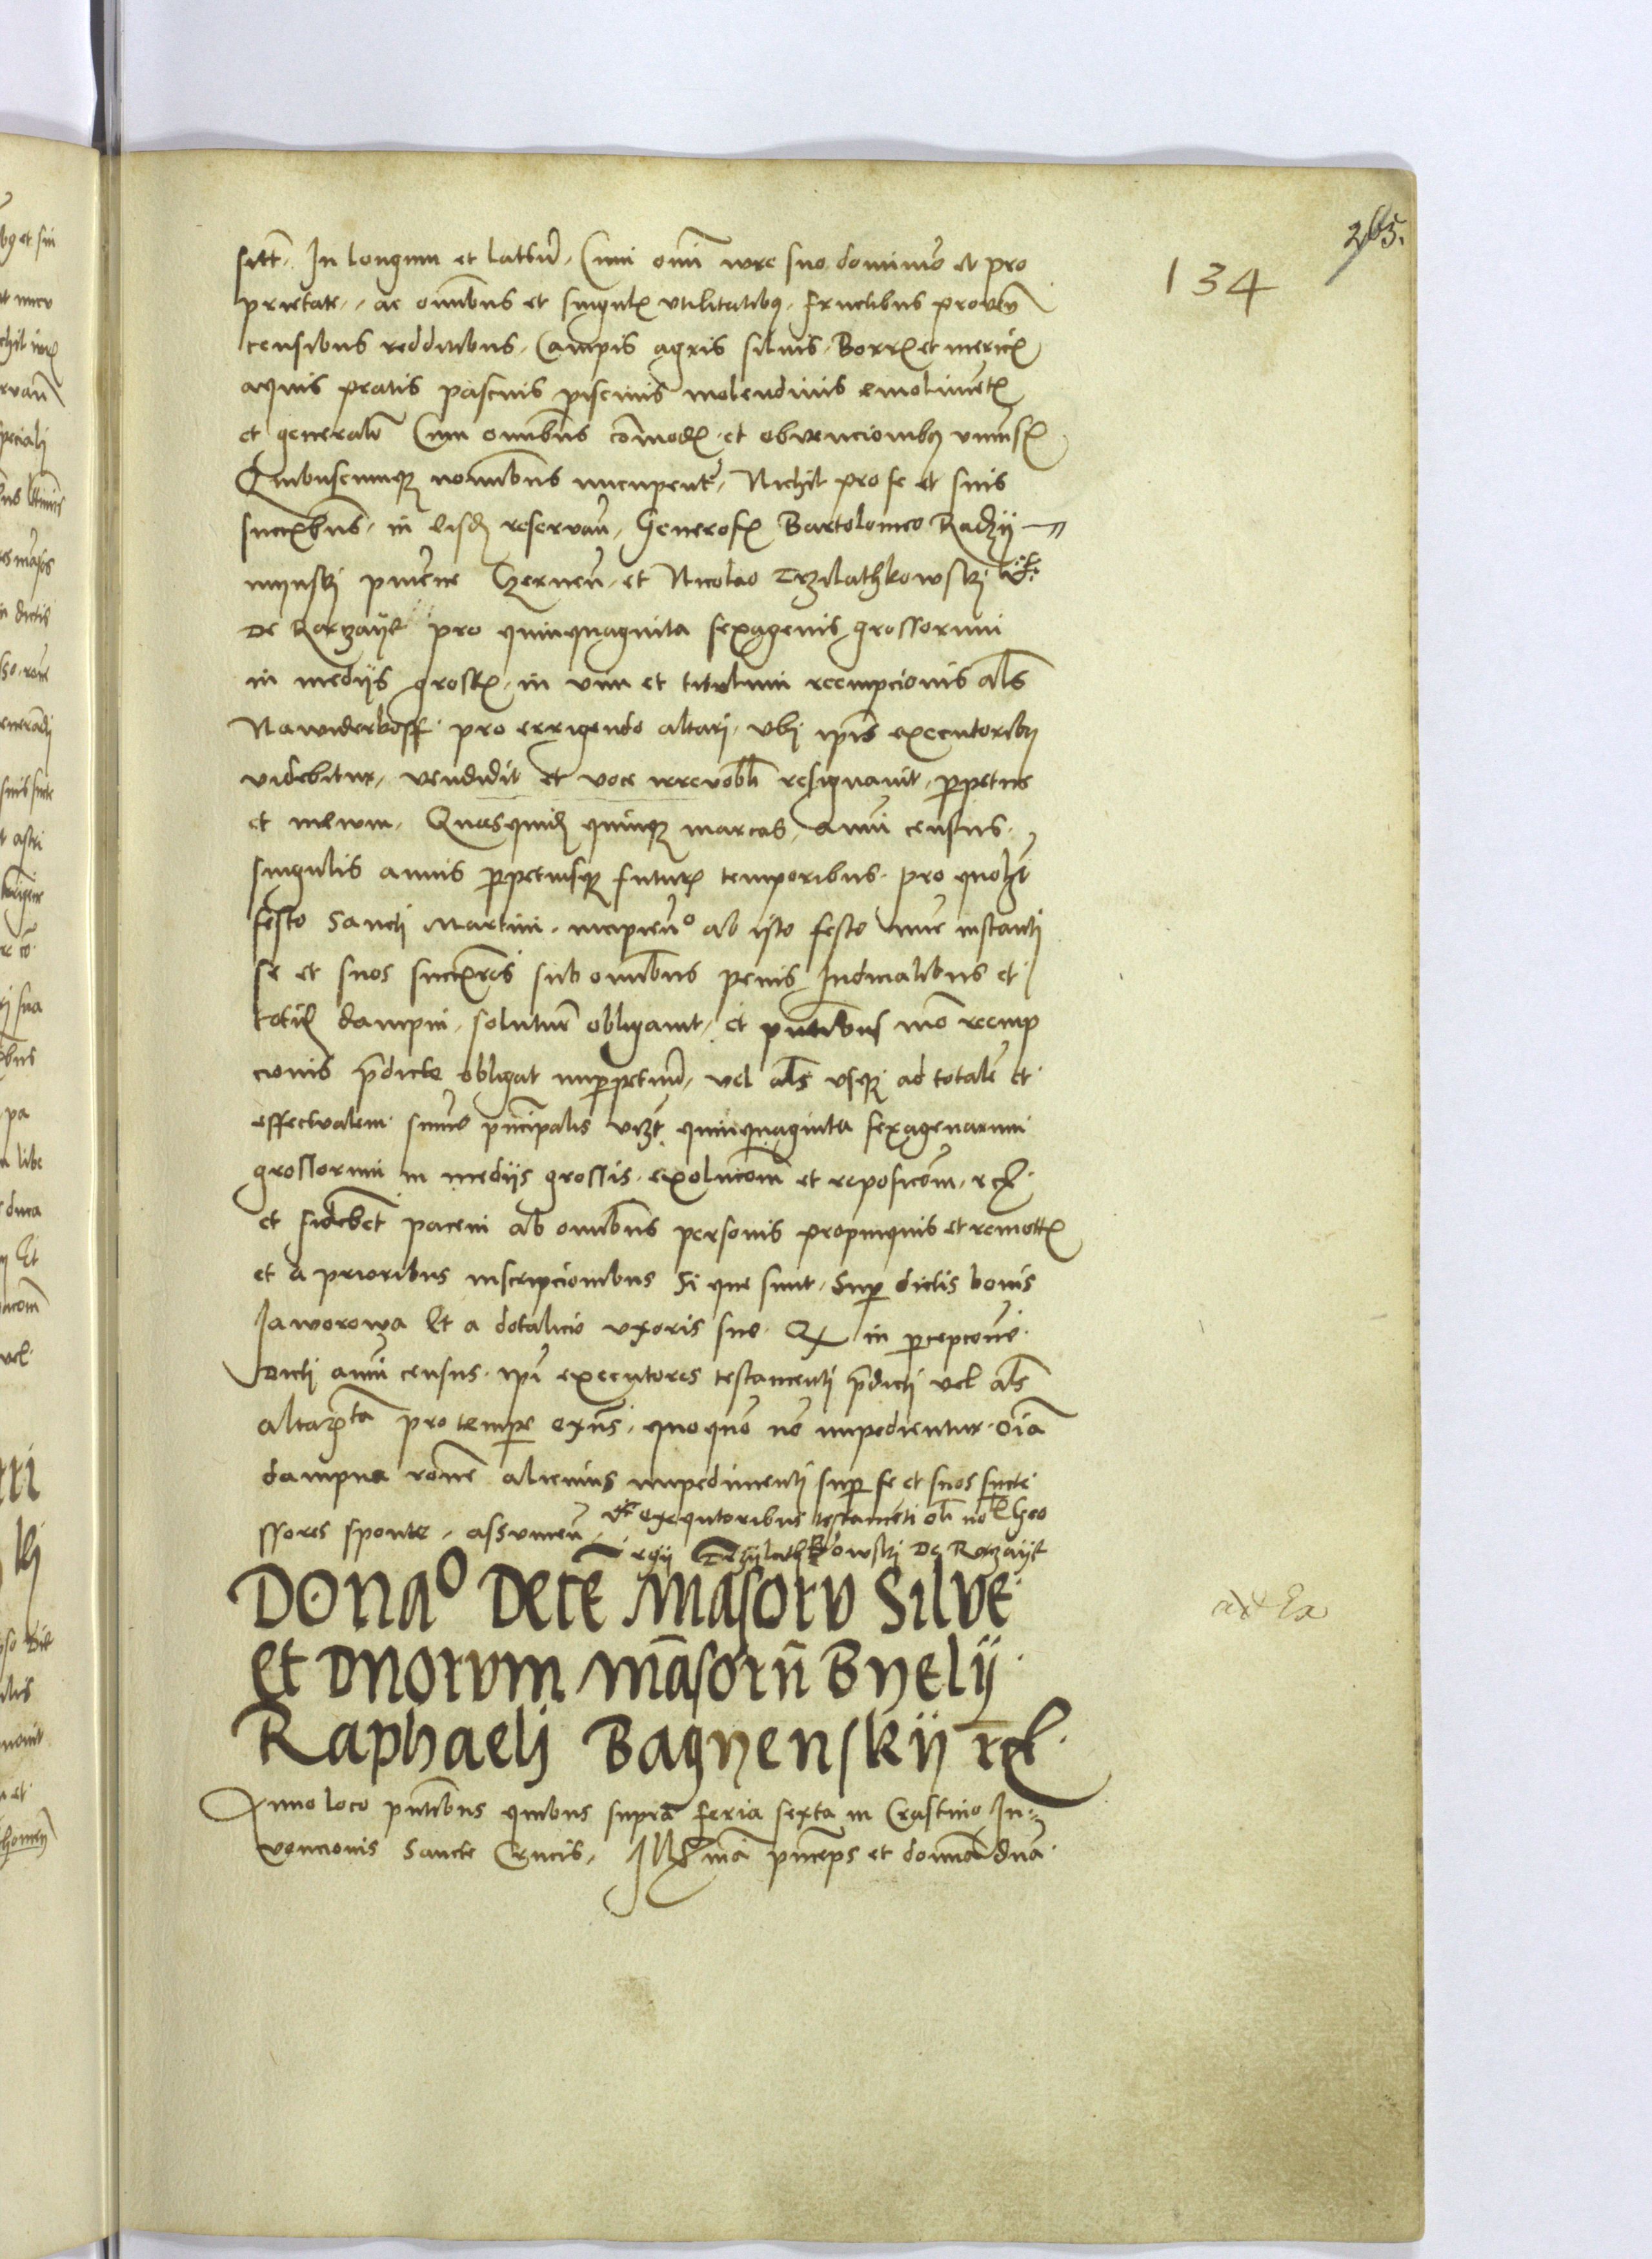 265.
134
sitt. In longum et latum. Cum omni iure suo dominio et pro
prietate, ac omnibus et singulis utilitatibus. fructibus proven
censibus redditibus. Campis agris silvis. Borris et mericis
aquis pratis pascuis piscinis molendinis emolimentis
et generaliter Cum omnibus comodis et obvencionibus universis
Quibuscumque nominibus nuncupentur, Nichil pro se et suis
successoribus. in eisdem reservan. Generosis Bartolomeo Radzy
mynski pincerne Czernen. et Nicolao Trzilathkowskj
De Karzayk pro quinquaginta sexagenis grossorum
in medijs grossis, in vim et titulum reempcionis als
Nawiderkoff. pro errigendo altari. ubj ipsis executoribus
videbitur, vendidit et voce irrevobli resignavit, perpetue
et inewm. Quasquidem quinque marcas, annui census.
singulis annis perpetuisque futuris temporibus. pro quolibet
festo Sancti Martini. incipiendo ab isto festo nunc instanti
se et suos successores sub omnibus penis Iudicialibus et
totidem dampni, soluturum obligavit, et presentibus modo reemp
cionis predicte obligat imperpetuum, vel als usque ad totalem et
effectualem summe principalis videlicet quinquaginta sexagenarum
grossorum in medijs grossis. exolucionem et reposicionem, etc.
et fidebet pacem ab omnibus personis propinquis et remotis
et a prioribus inscripcionibus Si que sunt. Super dictis bonis
Jaworowa Et a dotalicio uxoris sue. Quod in percepcione
Dicti annui census. ipsi executores testamenti predicti vel als
altarista pro tempore existens, quoquomodo non impedientur. omnia
dampna racione alicuius impedimenti super se et suos succe
ssores sponte, assumen. executoribus testamenti olim nobilis Geo
rgij Trzylathkowskj De Karzayk
Donao Decem Mansoru Silve
et Duorum Mansorum Byelij
Raphaelj Bagyenskij etc.
Anno loco presentibus quibus supra feria sexta in Crastino In
vencionis Sancte Crucis, Illustrissima princeps et domina dna